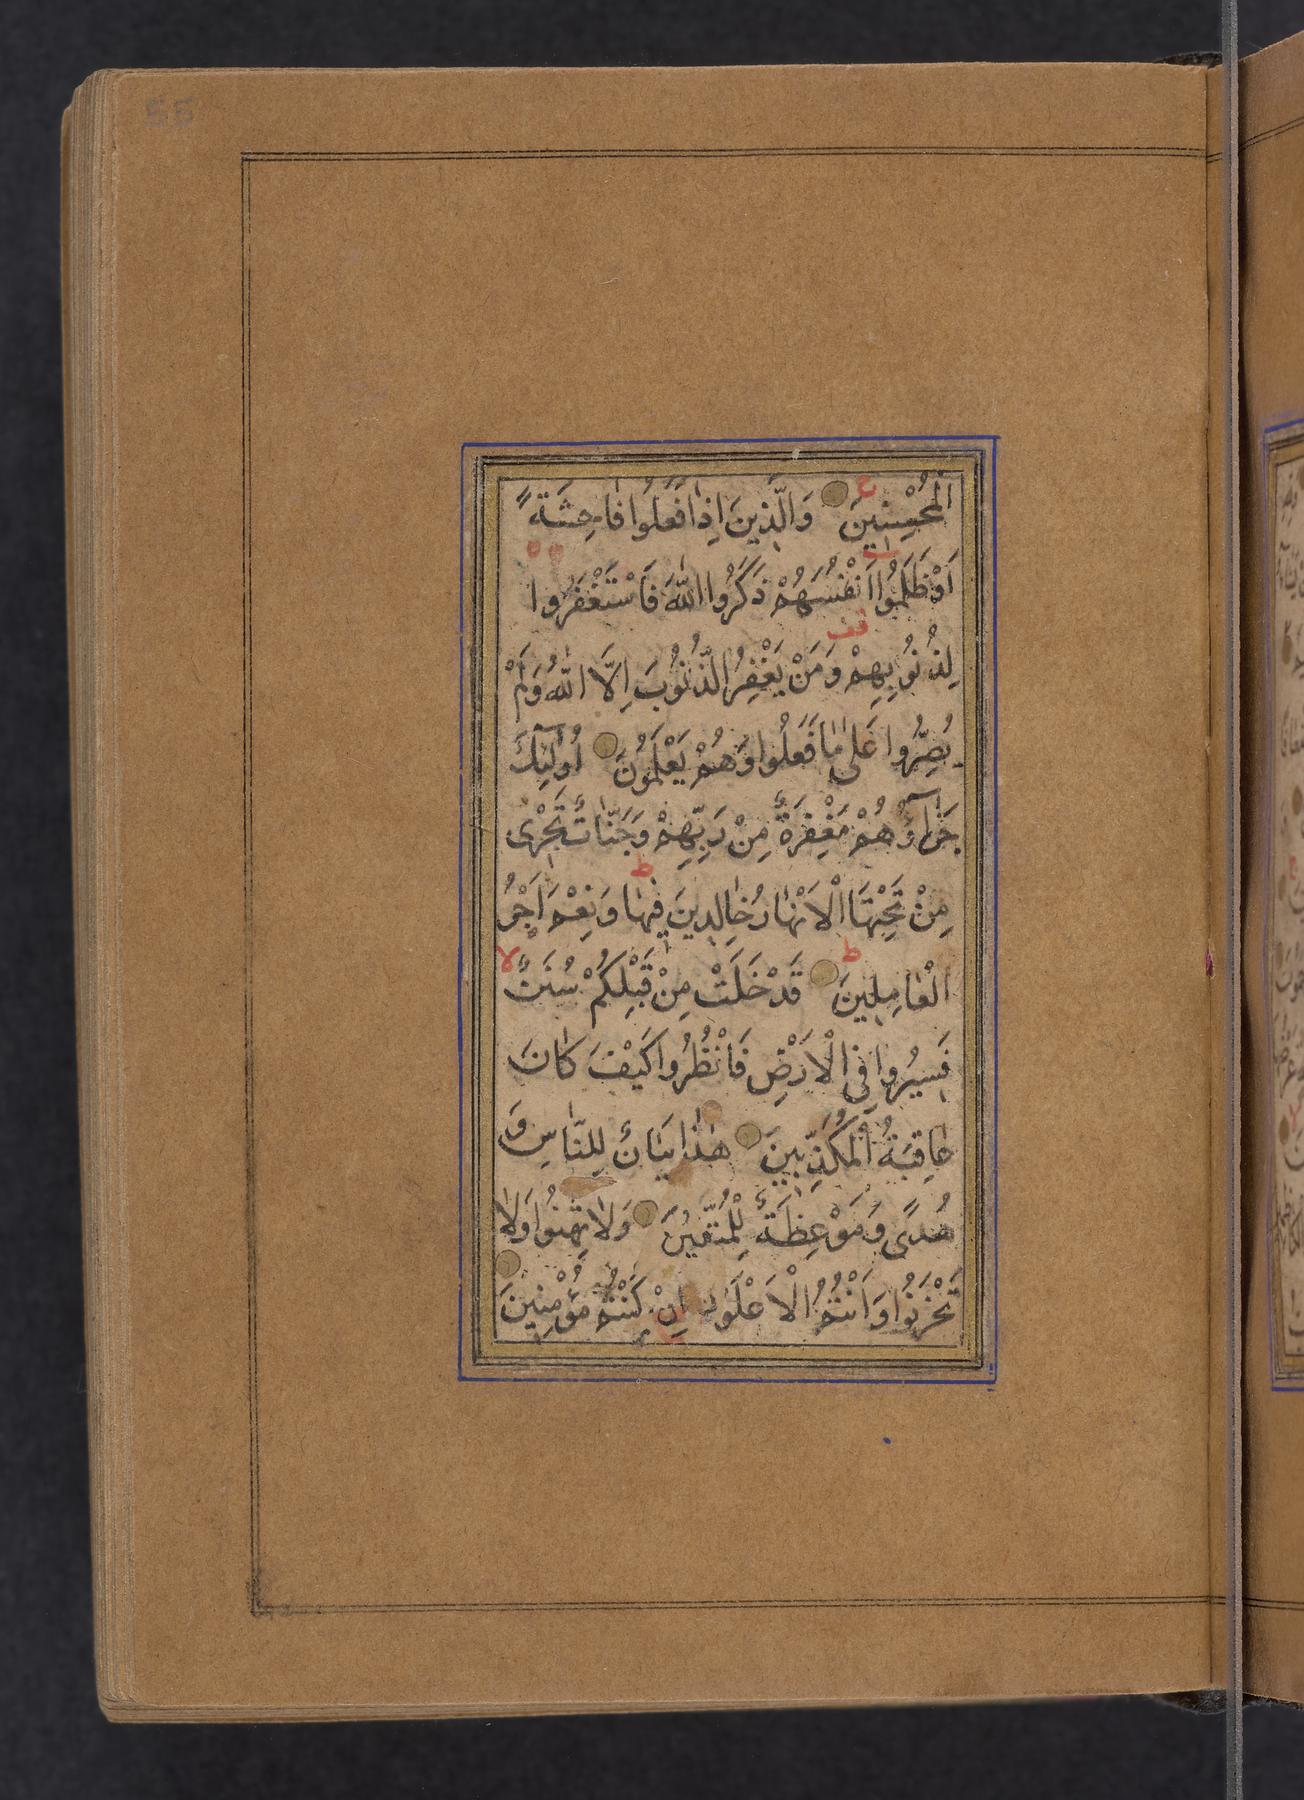 55
الْمُحْسِنِينَ وَالَّذِينَ اِذَا فَعَلُوا فَاحِشَةً
اَوْ ظَلَمُوا اَنْفُسَهُمْ ذَكَرُوا اللّٰهَ فَاسْتَغْفَرُوا
لِذُنُوبِهِمْ وَمَنْ يَغْفِرُ الذُّنُوبَ اِلَّا اللّٰهُ وَلَمْ
يُصِرُّوا عَلٰى مَا فَعَلُوا وَهُمْ يَعْلَمُونَ اُولٰئِكَ
جَزَآؤُهُمْ مَغْفِرَةٌ مِنْ رَبِّهِمْ وَجَنَّاتٌ تَجْرٰى
مِنْ تَحْتِهَا الْاَنْهَارُ خَالِدِينَ فِيهَا وَنِعْمَ اَجْرُ
الْعَامِلِينَ قَدْ خَلَتْ مِنْ قَبْلِكُمْ سُنَنٌ
فَسِيرُوا فِى الْاَرْضِ فَانْظُرُوا كَيْفَ كَانَ
عَاقِبَةُ الْمُكَذِّبِينَ هٰذَا بَيَانٌ لِلنَّاسِ وَ
هُدًى وَمَوْعِظَةٌ لِلْمُتَّقِينَ وَلَا تَهِنُوا وَلَا
تَحْزَنُوا وَاَنْتُمُ الْاَعْلَوْنَ اِنْ كُنْتُمْ مُؤْمِنِينَ